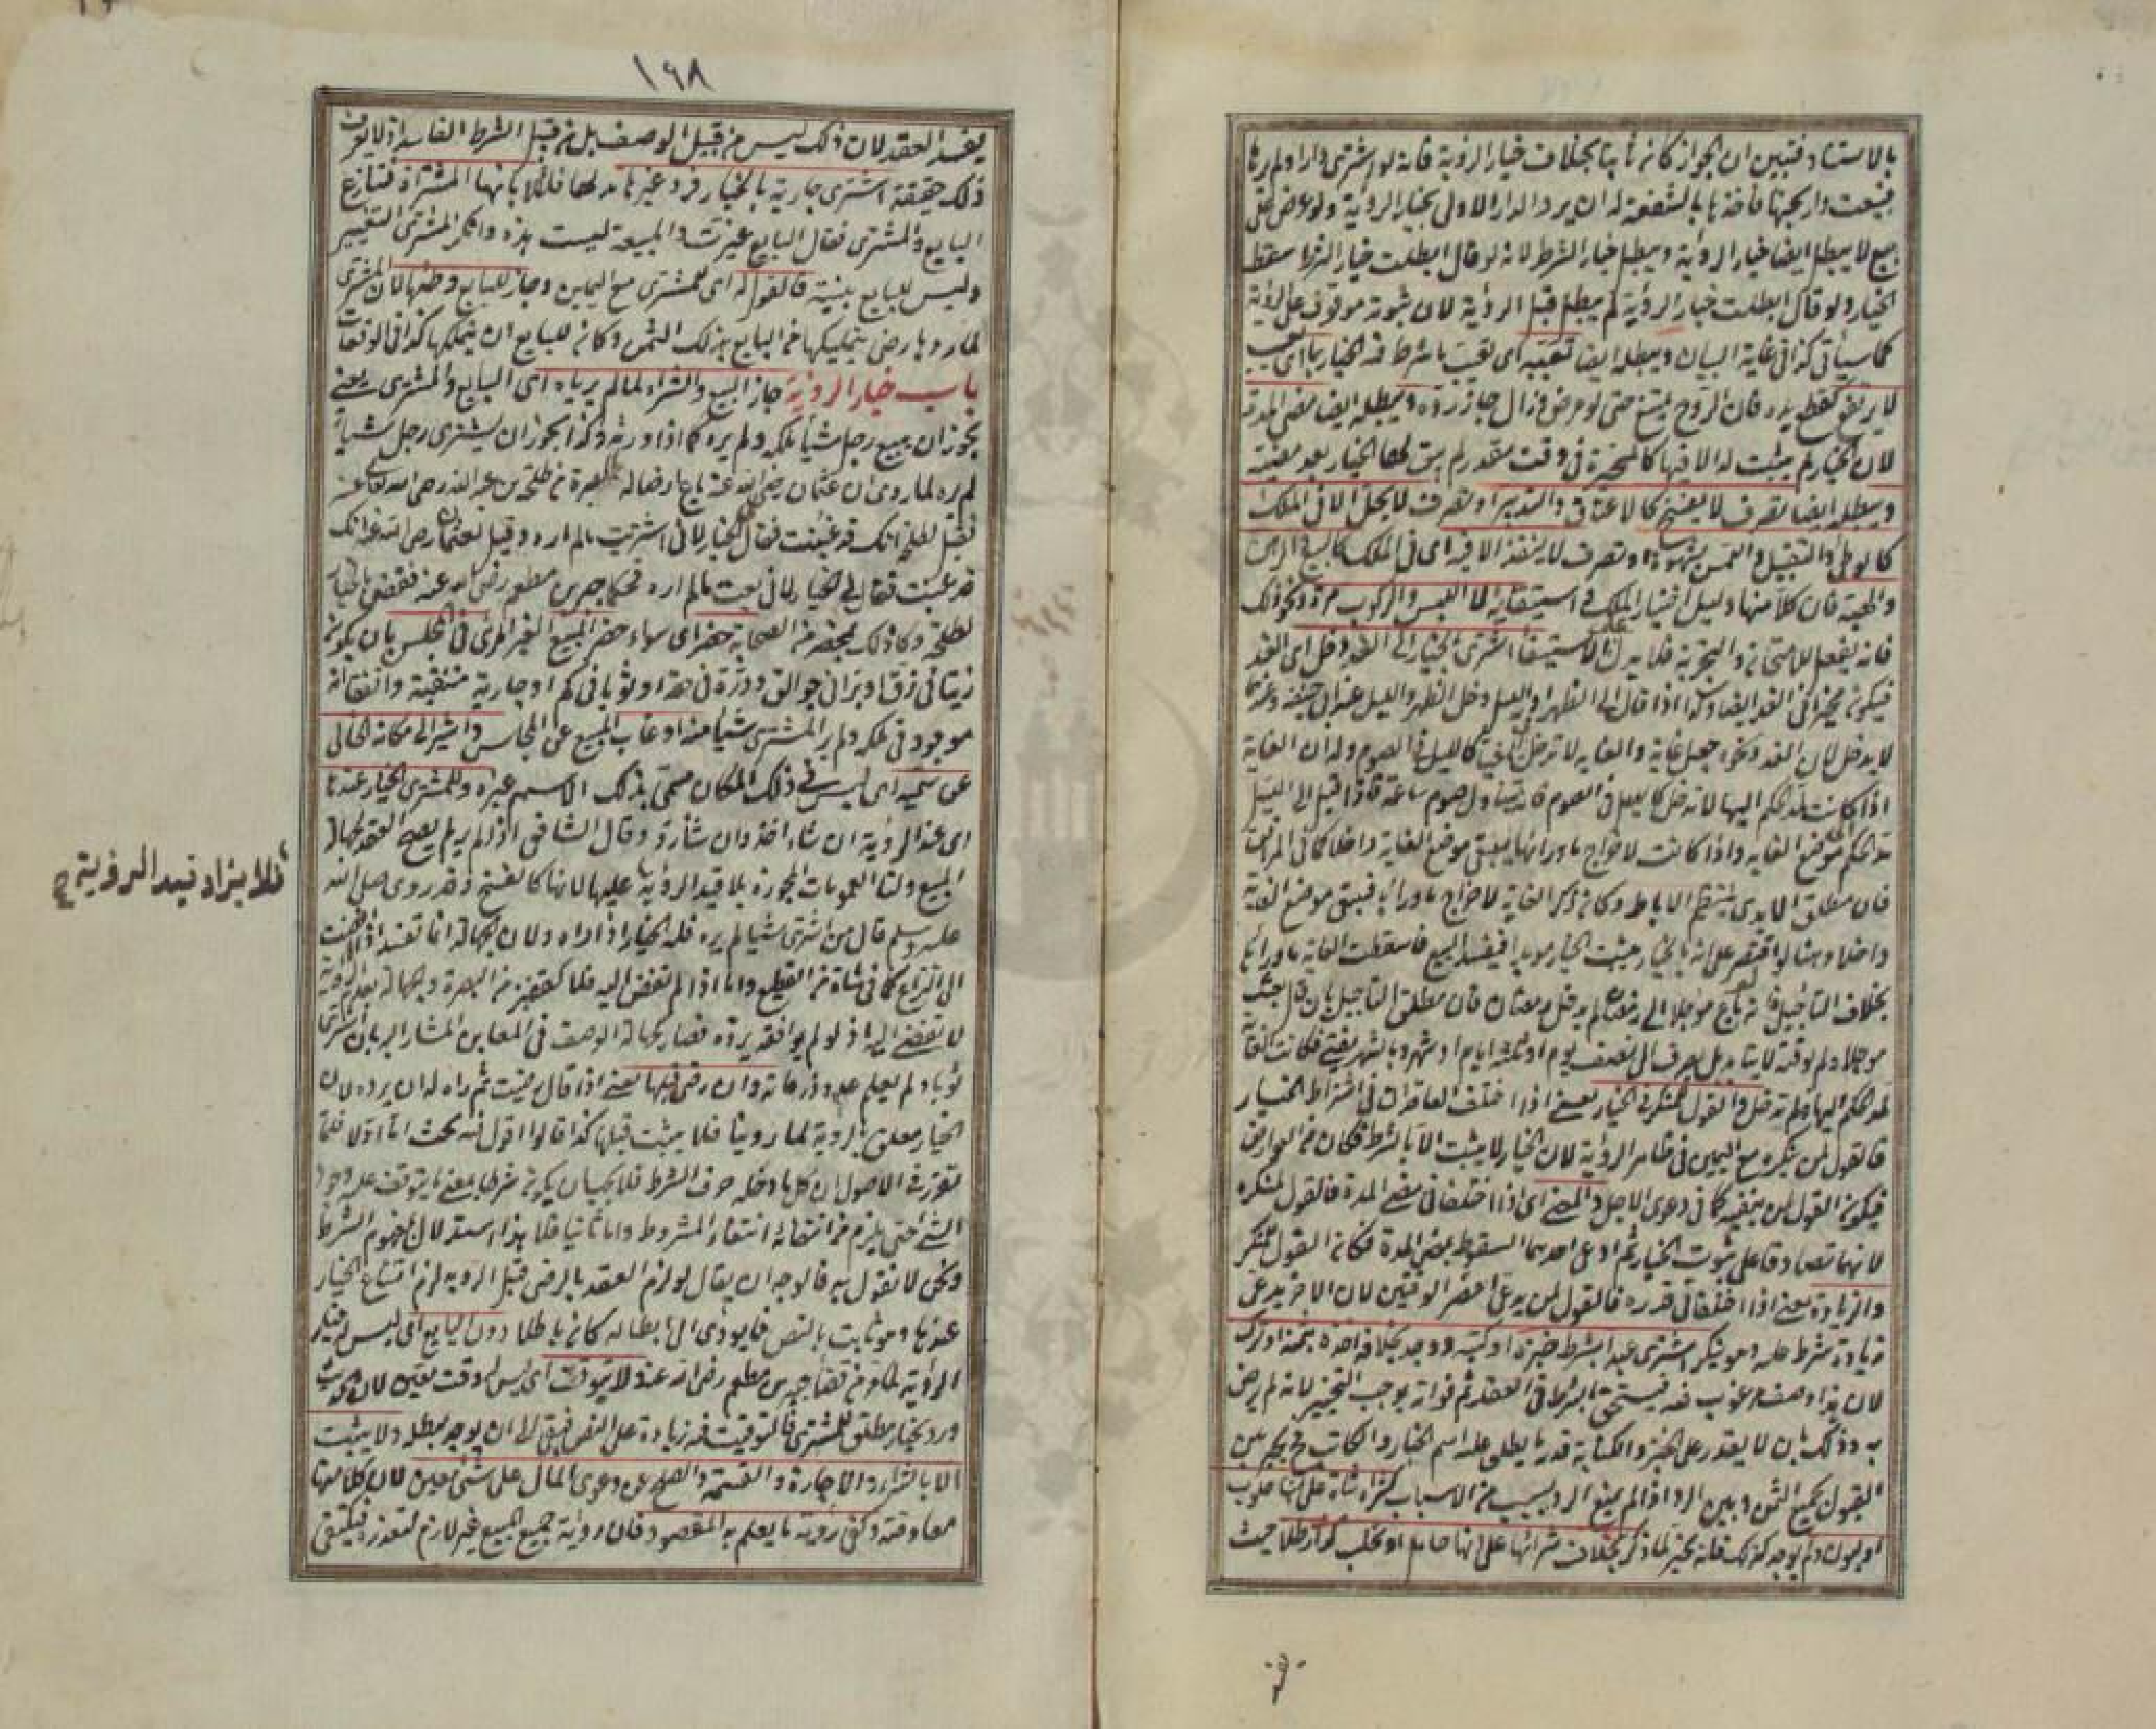 بالاستناد فتبين ان الجواز كان ثابتا بخلاف خيار الرؤية فانه لو اشترى دارا ولم يرها
فبيعت دار بجنبها فاخذها بالشفعة له ان يرد الدار الاولى بخيار الرؤية ولو عرض على
بيع لا يبطل ايضا خيار الرؤية ويبطل خيار الشرط لانه لو قال ابطلت خيار الشرط سقط
الخيار ولو قال ابطلت خيار الرؤية لم يبطل قبل الرؤية لان ثبوته موقوف على الرؤية
كما سيأتى كذا فى غاية البيان ويبطله ايضا تعيبه اى تعيب ما شرط فيه الخيار بها اى بعيب
لا يرتفع كقطع يده فان الرد ح يمتنع حتى لو مرض وزال جاز رده ويبطله ايضا مضى المدة
لان الخيار لم يثبت له الا فيها كالمخيرة فى وقت مقدر لم يبق لها الخيار بعد مضيه
ويبطله ايضا تصرف لا يفسخ كالاعتاق والتدبير او تصرف لا يحل الا فى الملك
كالوطئ والتقبيل واللمس بشهوة او تصرف لا ينفذ الا فيه اى فى الملك كالبيع والرهن
والهبة فان كلا منها دليل اختيار الملك واستبقائه لا اللبس والركوب مرة ونحو ذلك
فانه يفعل للامتحان والتجربة فلا يدل على الاستبقاء اشترى بالخيار الى الغد دخل اى الغد
فيكون مخيرا فى الغد ايضا وكذا اذا قال الى الظهر او الليل دخل الظهر والليل عند ابى حنيفة وعندهما
لا يدخل لان الغد ونحوه جعل غاية والغاية لا تدخل فى المغيا كالليل فى الصوم وله ان الغاية
اذا كانت لمد الحكم اليها لا تدخل كالليل فى الصوم فانه يتناول صوم ساعة فاذا قيل الى الليل
مد الحكم لموضع الغاية واذا كانت لاخراج ما وراءها يبقى موضع الغاية داخلا كما فى المرافق
فان مطلق الايدى ينتظم الاباط وكان ذكر الغاية لاخراج ما وراءها فيبقى موضع الغاية
داخلا وهنا لو اقتصر على انه بالخيار يثبت الخيار مؤبدا فيفسد البيع فاسقطت الغاية ما وراءها
بخلاف التأجيل فانه لو باع مؤجلا الى رمضان لم يدخل رمضان فان مطلق التأجيل بان قال بعت
مؤجلا ولم يوقته لا يتأبد بل يصرف الى نصف يوم او ثلثة ايام او شهر وبالشهر يفتى فكانت الغاية
لمد الحكم اليها فلم تدخل والقول لمنكر الخيار يعنى اذا اختلف العاقدان فى اشتراط الخيار
فالقول لمن ينكره مع اليمين فى ظاهر الرواية لان الخيار لا يثبت الا بالشرط فكان من العوارض
فيكون القول لمن ينفيه كما فى دعوى الاجل والمضى اى اذا اختلفا فى مضى المدة فالقول لمنكره
لانهما تصادقا على ثبوت الخيار ثم ادعى احدهما السقوط بمضى المدة فكان القول للمنكر
والزيادة يعنى اذا اختلفا فى قدره فالقول لمن يدعى اقصر الوقتين لان الاخر يدعى
زيادة شرط عليه وهو ينكر اشترى عبدا بشرط خبزه او كتبه ووجد بخلافه اخذه بثمنه او ترك
لان هذا وصف مرغوب فيه فيستحق بالشرط فى العقد ثم فواته يوجب التخيير لانه لم يرض
به وذلك بان لا يقدر على الخبز والكتابة قدر ما يطلق عليه اسم الخباز والكاتب ح يخير بين
القبول بجميع الثمن وبين الرد اذا لم يمنع الرد بسبب من الاسباب كشراء شاة على انها حلوب
او لبون ولم يوجد كذلك فانه يخير لما ذكر بخلاف شرائها على انها حامل او تحلب كذا رطلا حيث
١٦٨
يفسد العقد لان ذلك ليس من قبيل الوصف بل من قبيل الشرط الفاسد اذ لا يعرف
ذلك حقيقة اشترى جارية بالخيار فرد غيرها بدلها قائلا بانها المشتراة فتنازع
البايع والمشترى فقال البايع غيرت والمبيعة ليست هذه وانكر المشترى التغيير
وليس للبايع بينة فالقول له اى للمشترى مع اليمين وجاز للبايع وطئها لان المشترى
لما ردها رضى بتمليكها من البايع بذلك الثمن وكان للبايع ان يتملكها كذا فى الواقعات
باب خيار الرؤية جاز البيع والشراء لما لم يرياه اى البايع والمشترى يعنى
يجوز ان يبيع رجل شيأ يملكه ولم يره كما اذا ورثه وكذا يجوز ان يشترى رجل شيأ
لم يره لما روى ان عثمان رضى الله عنه باع ارضا له بالبصرة من طلحة بن عبد الله رضى الله تعالى عنه
فقيل لطلحة انك قد غبنت فقال لى الخيار لانى اشتريت ما لم اره وقيل لعثمان رضى الله عنه انك
قد غبنت فقال لى الخيار لانى بعت ما لم اره فحكما جبير بن مطعم رضى الله عنه فقضى بالخيار
لطلحة وكان ذلك بمحضر من الصحابة حضر اى سواء حضر المبيع الغير المرئى فى المجلس بان يكون
زيتا فى زق او برا فى جوالق او درة فى حقة او ثوبا فى كم او جارية متنقبة واتفقا انه
موجود فى ملكه ولم ير المشترى شيأ منه او غاب المبيع عن المجلس واشير الى مكانه الخالى
عن سميه اى ليس فى ذلك المكان مسمى بذلك الاسم غيره وللمشترى الخيار عندها
اى عند الرؤية ان شاء اخذ وان شاء رد وقال الشافعى اذا لم يره لم يصح العقد لجهالة
المبيع ولنا العمومات المجوزة بلا قيد الرؤية عليها لانها كالفسخ وقد روى صلى الله
عليه وسلم قال من اشترى شيأ لم يره فله الخيار اذا راه ولان الجهالة انما تفسد اذا افضت
الى النزاع كما فى شاة من القطيع واما اذا لم تفض اليه فلا كقفيز من الصبرة وجهالة عدم الرؤية
لا تفضى اليه اذ لو لم يوافقه يرده فصار كجهالة الوصف فى المعاين المشار اليه بان اشترى
ثوبا ولم يعلم عدد ذرعانه وان رضى قبلها يعنى اذا قال رضيت ثم راه له ان يرده لان
الخيار معلق بالرؤية لما روينا فلا يثبت قبلها كذا قالوا اقول فيه بحث اما اولا فلما
تقرر فى الاصول ان كل ما دخله حرف الشرط فلا يجب ان يكون شرطا بمعنى ما يتوقف عليه وجود
الشئ حتى يلزم من انتفائه انتفاء المشروط واما ثانيا فلان هذا استدلال بمفهوم الشرط
ونحن لا نقول به فالوجه ان يقال لو لزم العقد بالرضى قبل الرؤية لزم امتناع الخيار
عندها وهو ثابت بالنص فما يؤدى الى ابطاله كان باطلا دون البايع اى ليس له خيار
الرؤية لما مر من قضاء جبير بن مطعم رضى الله عنه ولا يتوقت اى ليس له وقت معين لان الحديث
ورد بخيار مطلق للمشترى فالتوقيت فيه زيادة على النص فيبقى الى ان يوجد مبطله ولا يثبت
الا بالشراء والاجارة والقسمة والصلح عن دعوى المال على شئ معين لان كلا منها
معاوضة وكفى رؤية ما يعلم به المقصود فان رؤية جميع المبيع غير لازم لتعذره فيكتفى
فلا يزاد قيد الرؤية ح